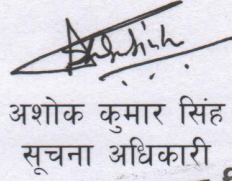 अशोक कुमार सिंह
सूचना अधिकारी